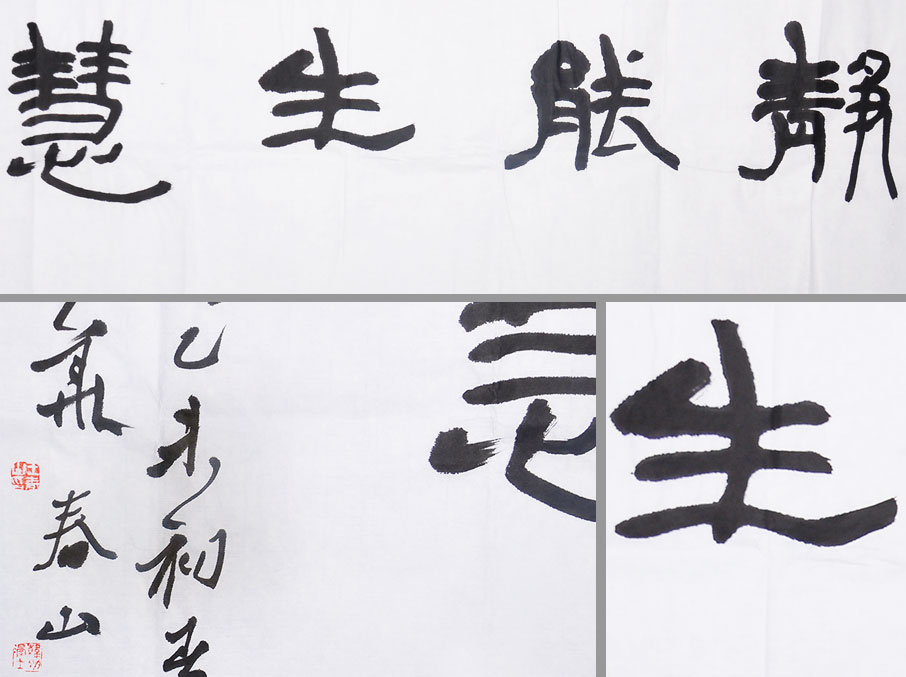 靜能生慧
乙未初
春山
生